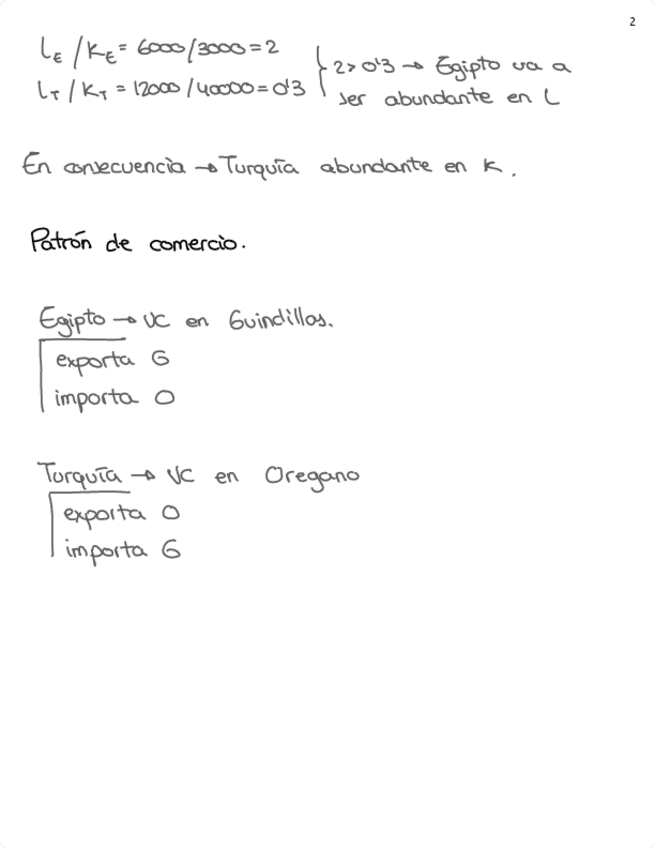 2
L_E / K_E = 6000/3000 = 2
L_T / K_T = 12000/40000 = 0'3
2 > 0'3 → Egipto va a
ser abundante en L
En consecuencia → Turquía abundante en K.
Patrón de comercio.
Egipto → VC en Guindillas.
exporta G
importa O
Turquía → VC en Oregano
exporta O
importa G